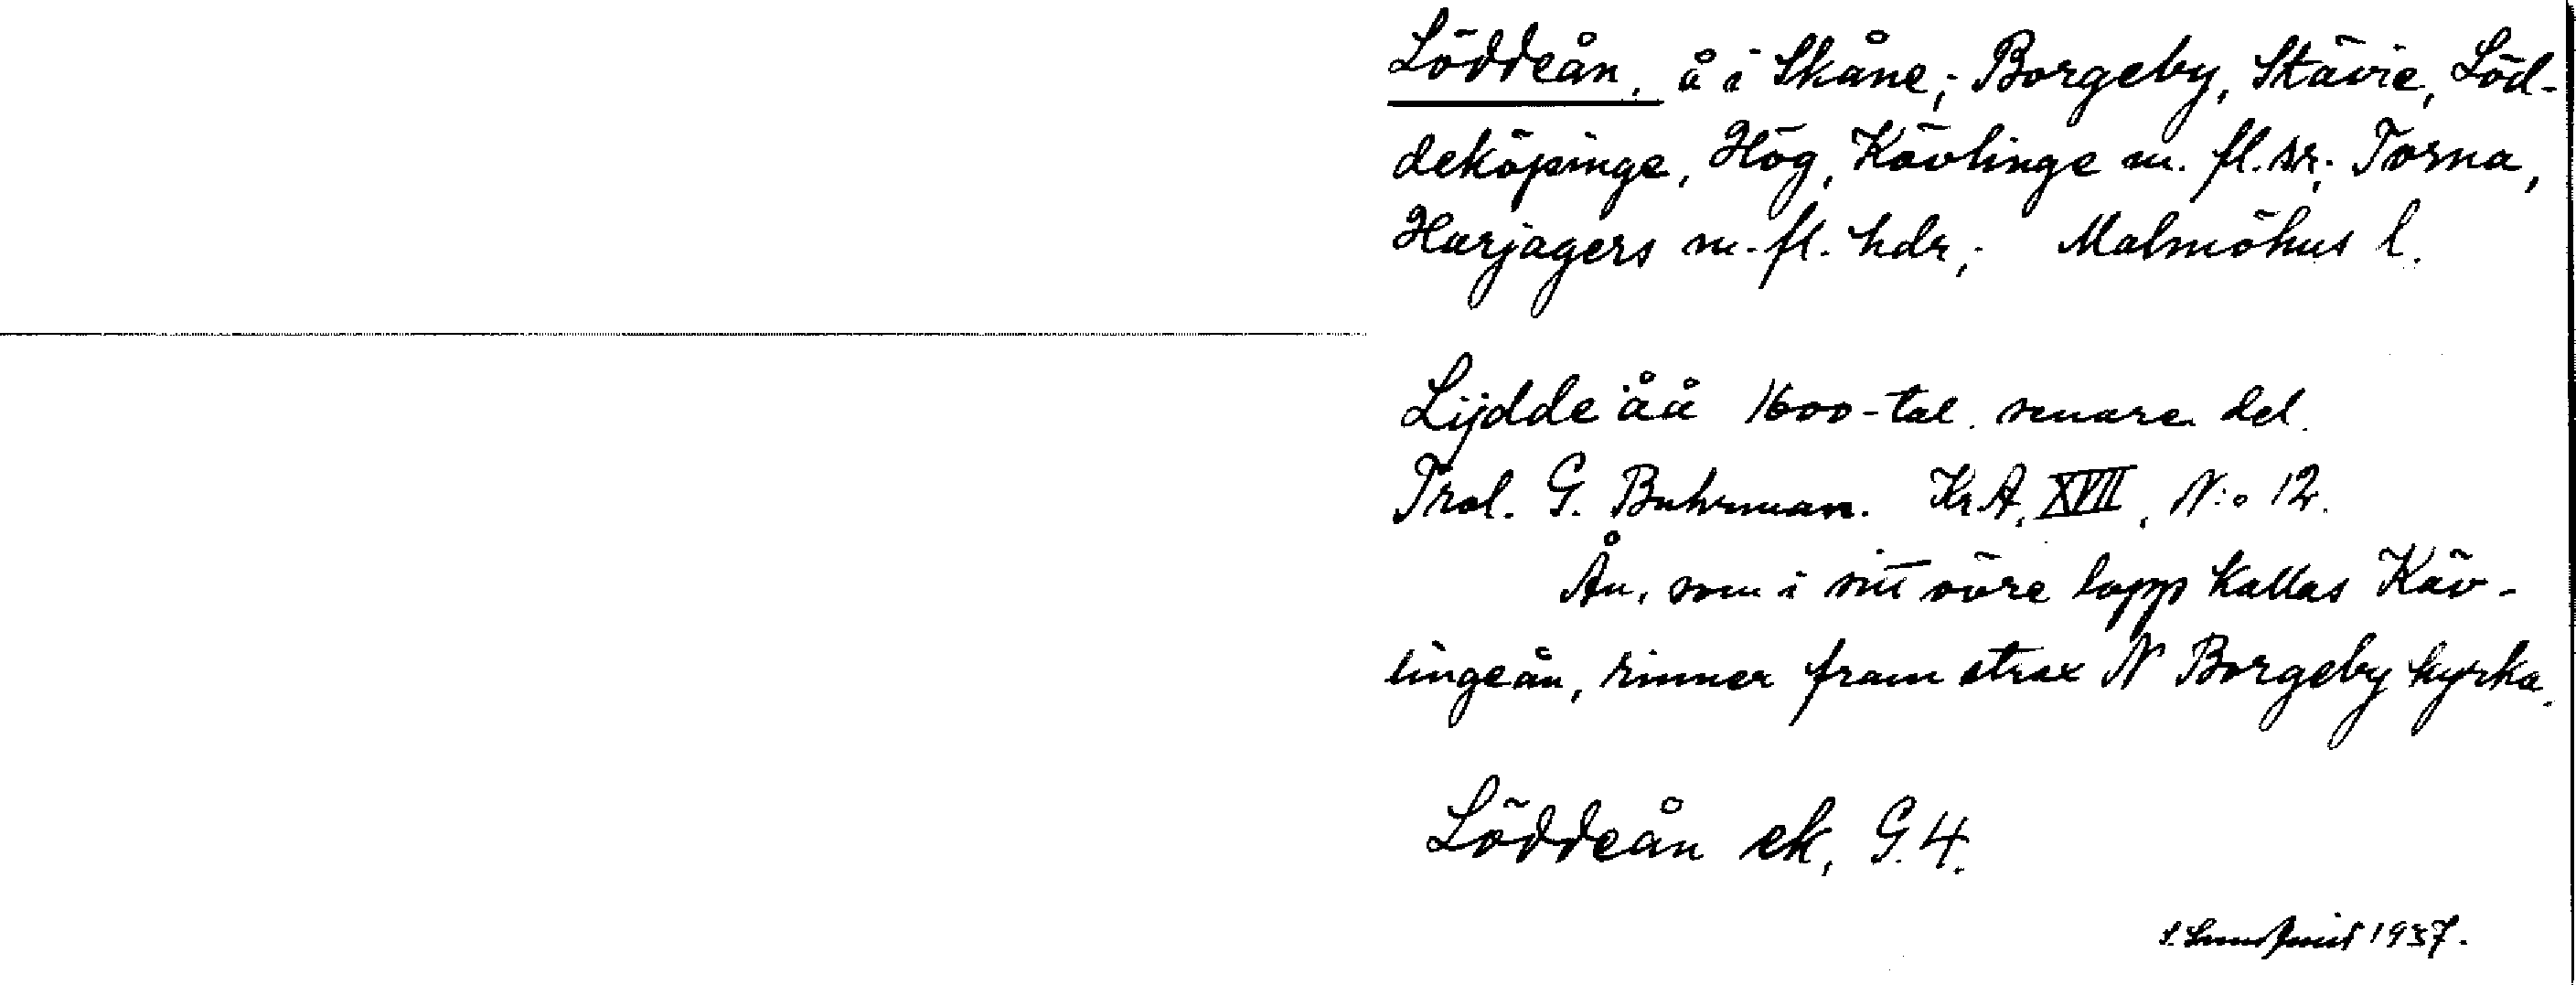 Löddeån, å i Skåne; Borgeby, Stävie, Löd-
deköpinge, Hög, Kävlinge m. fl. snr; Torna,
Harjagers m. fl. hdr; Malmöhus l.
Lijdde åå 1600-tal. senare del.
Trol. G. Buhrman. Kr. A. XVII, N:o 12.
Ån, som i sitt övre lopp kallas Käv-
lingeån, rinner fram strax N Borgeby kyrka.
Löddeån ek. G. 4.
1937.